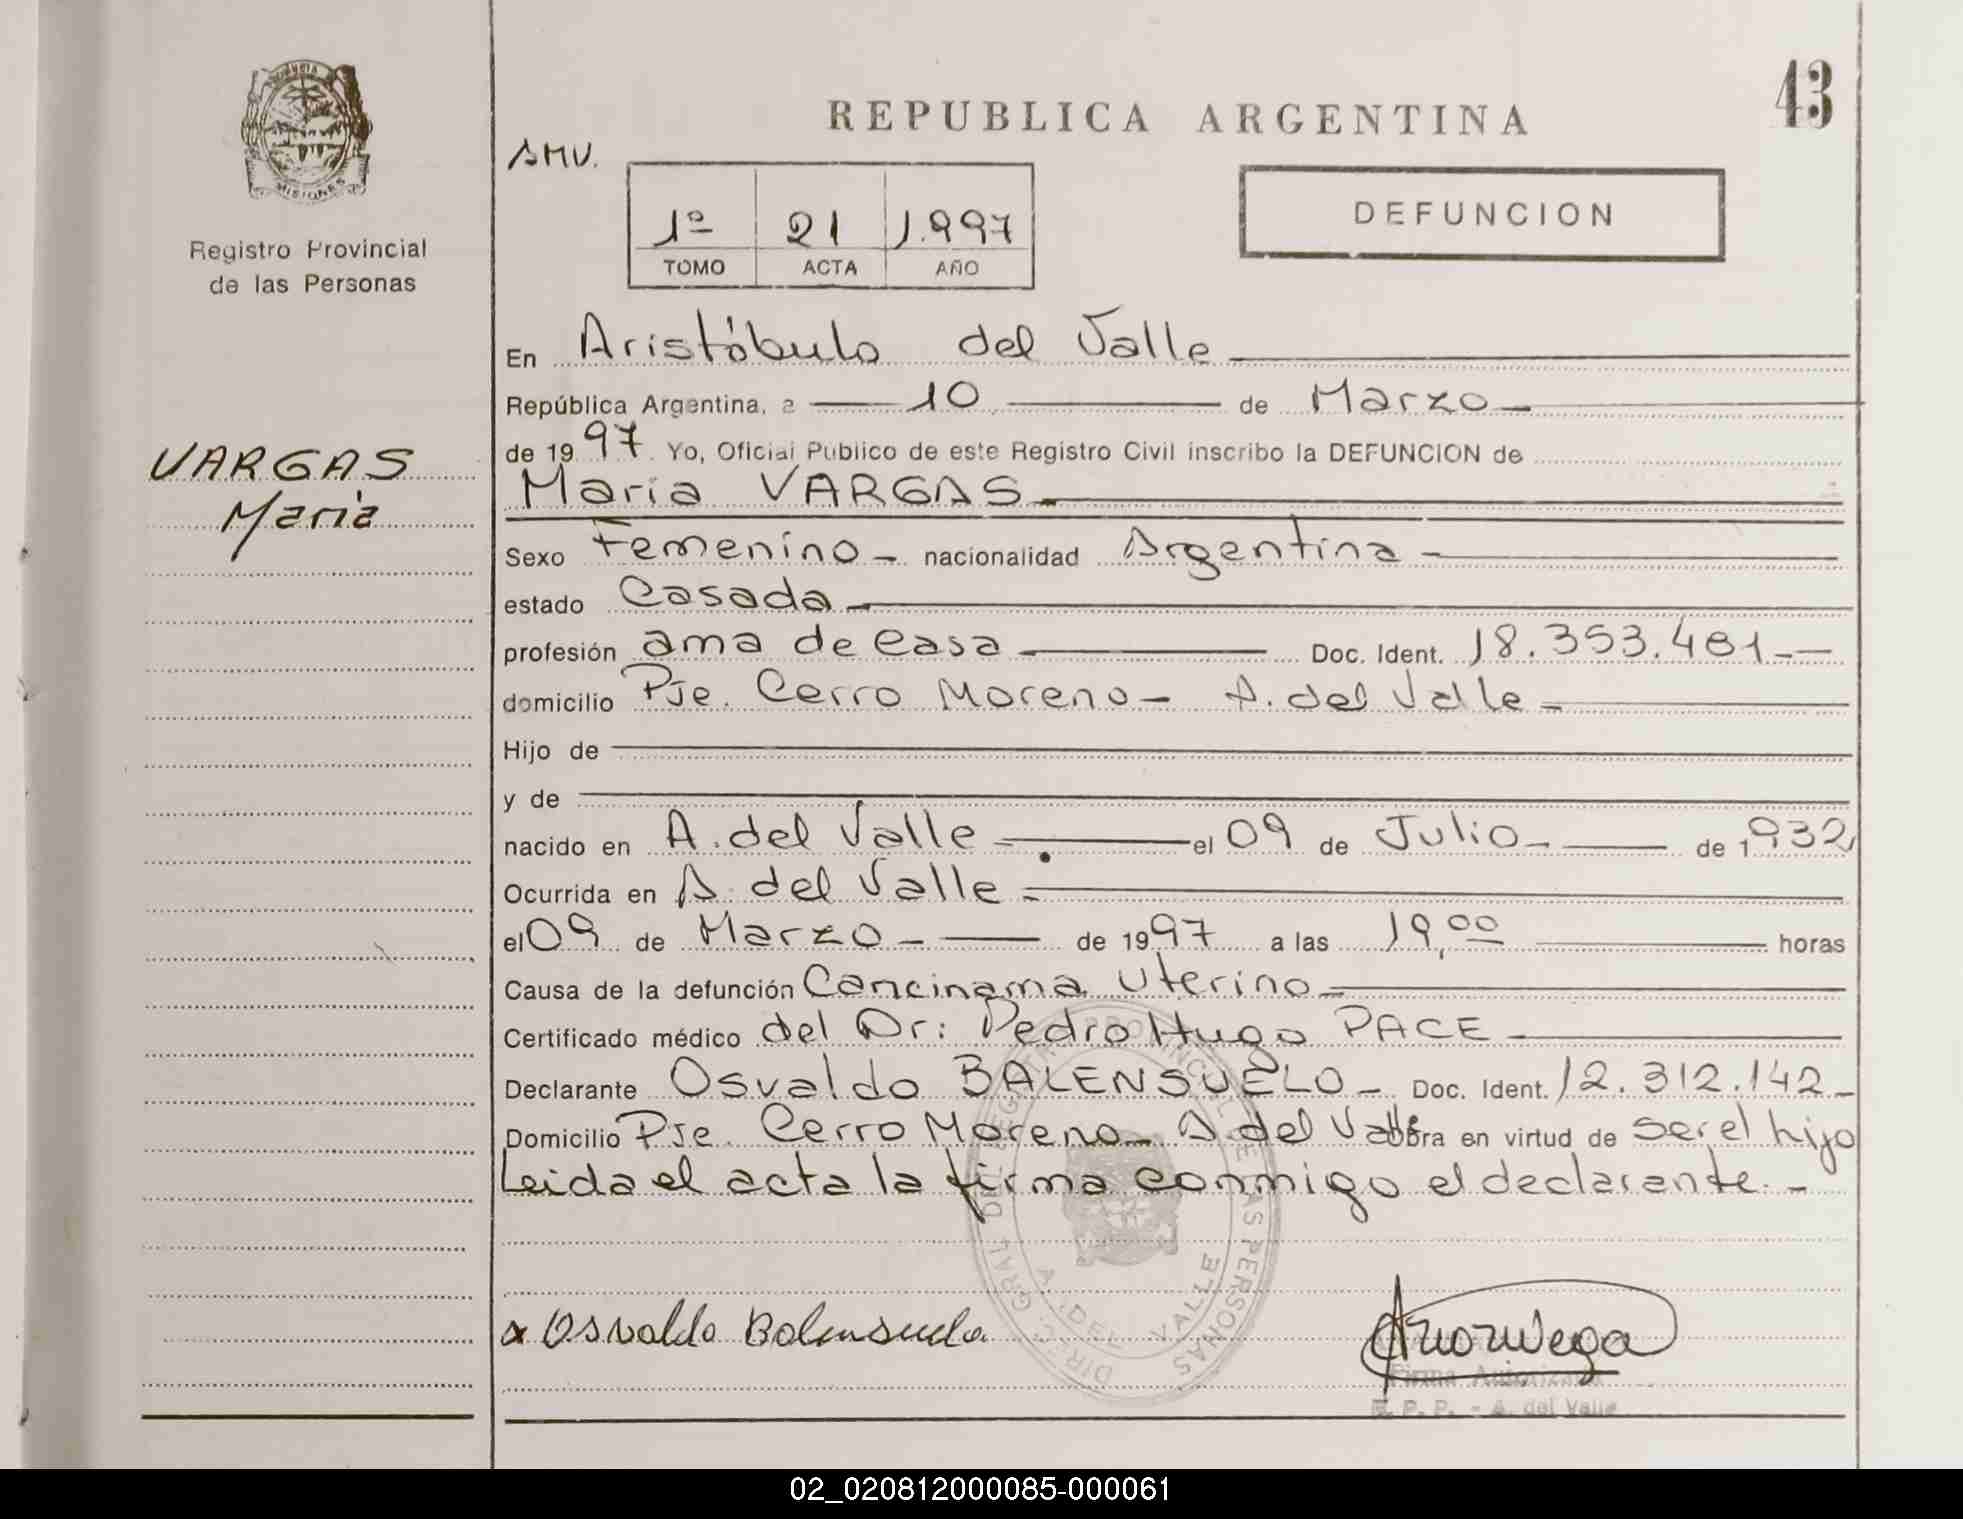 PROVINCIA
MISIONES
Registro Provincial
de las Personas
VARGAS
Maria
43
REPUBLICA ARGENTINA
AMV.
1º 21 1.997
TOMO ACTA AÑO
DEFUNCION
En Aristóbulo del Valle
República Argentina, a 10 de Marzo
de 1997 Yo, Oficial Publico de este Registro Civil inscribo la DEFUNCION de
Maria VARGAS
Sexo Femenino nacionalidad Argentina
estado Casada
profesión ama de casa Doc. Ident. 18.353.481
domicilio Pje. Cerro Moreno - A. del Valle
Hijo de
y de
nacido en A. del Valle el 09 de Julio de 1932
Ocurrida en A. del Valle
el 09 de Marzo de 1997 a las 19,00 horas
Causa de la defunción Cancinama Uterino
Certificado médico del Dr: Pedro Hugo PACE
Declarante Osvaldo BALENSUELO Doc. Ident. 12.312.142
Domicilio Pje. Cerro Moreno - A. del Valle obra en virtud de ser el hijo
Leida el acta la firma conmigo el declarante. -
x Osvaldo Balensuela
DIREC. GRAL. DEL REGISTRO PROVINCIAL DE LAS PERSONAS
A. DEL VALLE
Firma Autorizada
R. P. P. - A. del Valle
02_020812000085-000061